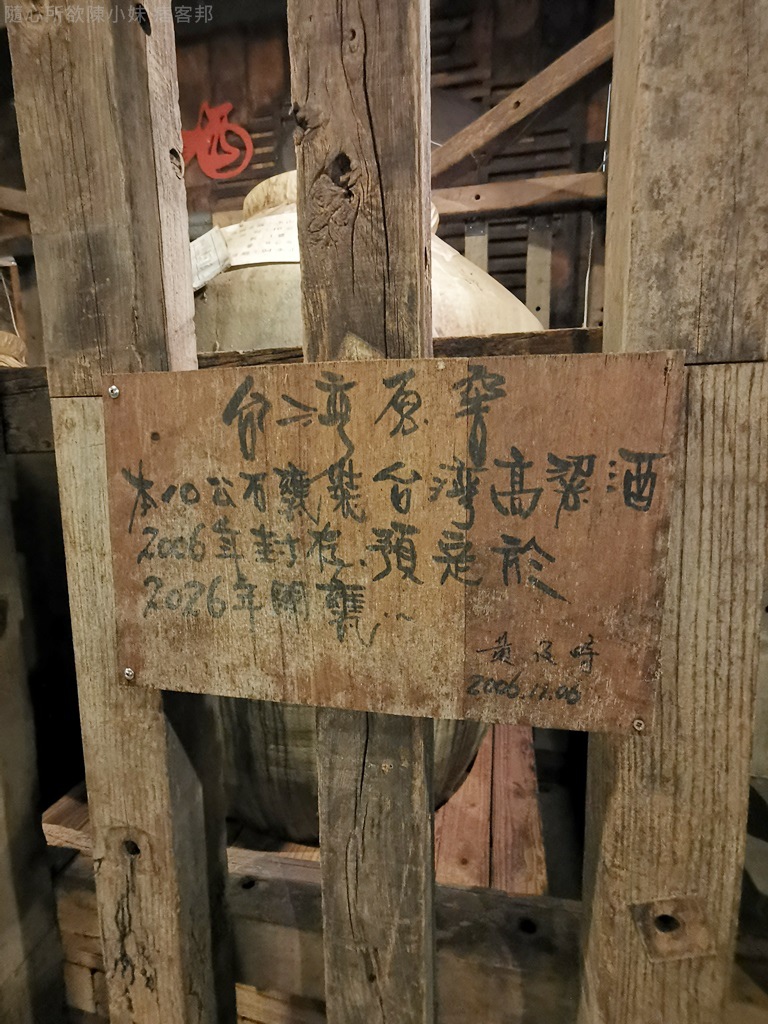 隨心所欲陳小妹 痞客邦
酒
台灣原窖
本10公石甕裝台灣高粱酒
2006年封存.預定於
2026年開甕~
黃及時